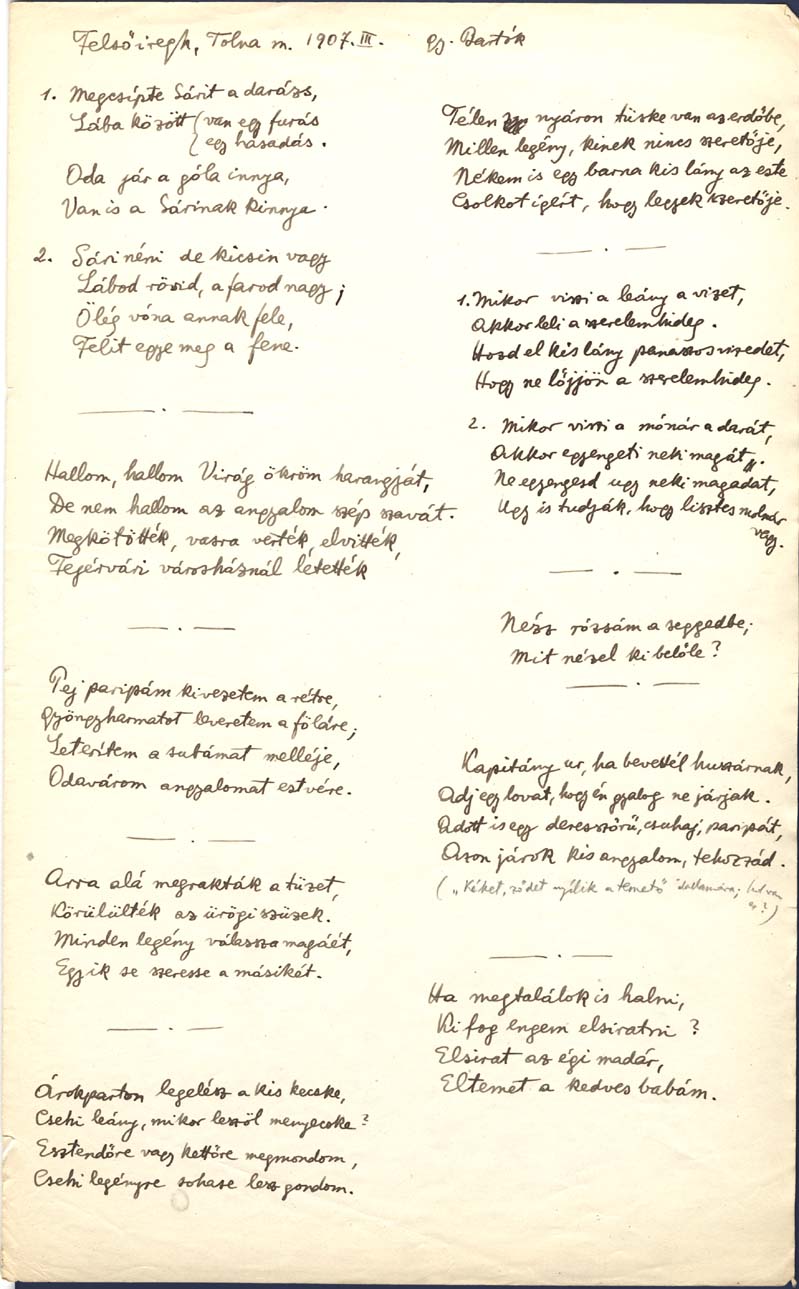 Felsőiregh, Tolna m. 1907. III. gy. Bartók
1. Megcsípte Sárit a darázs,
Lába között (van egy furás
(egy hasadás.
Oda jár a góla innya,
Van is a Sárinak kinnya.
2. Sári néni de kicsin vagy
Lábod rövid, a farod nagy;
Ölég vóna annak fele,
Felit egye meg a fene.
Hallom, hallom Virág ökröm harangját,
De nem hallom az angyalom szép szavát.
Megkötötték, vasra verték, elvitték,
Fejérvári városháznál letették
Pej paripám kivezetem a rétre,
Gyöngyharmatot leveretem a föláre;
Leterítem a subámat melléje,
Odavárom angyalomat estvére.
Arra alá megrakták a tüzet,
Körülülték az ürögi szüzek.
Minden legény válassza magáét,
Egyik se szeresse a másikét.
Árokparton legelész a kis kecske,
Csehi leány, mikor leszöl menyecske?
Esztendőre vagy kettőre megmondom,
Csehi legényre sohase lesz gondom.
Télen nyáron tüske van az erdőbe,
Millen legény, kinek nincs szeretője,
Nékem is egy barna kis lány az este
Csolkot igért, hogy legyek szeretője.
1. Mikor viszi a leány a vizet,
Akkor leli a szerelemhideg.
Hozd el kis lány panaszos vizedet,
Hogy ne löjjön a szerelemhideg.
2. Mikor viszi a mónár a darát,
Akkor egyengeti neki magát.
Ne egyengesd ugy neki magadat,
Ugy is tudják, hogy lisztes molnár
vagy.
Nézz rózsám a seggedbe;
Mit nézel ki belőle?
Kapitány ur, ha bevettél huszárnak,
Adj egy lovat, hogy én gyalog ne járjak.
Adott is egy deresszőrű, csuhaj, paripát,
Azon járok kis angyalom, tehozzád.
("Kéket, zödet nyílik a temető" dallamára; hol van
ez?)
Ha megtalálok is halni,
Ki fog engem elsiratni?
Elsirat az égi madár,
Eltemet a kedves babám.